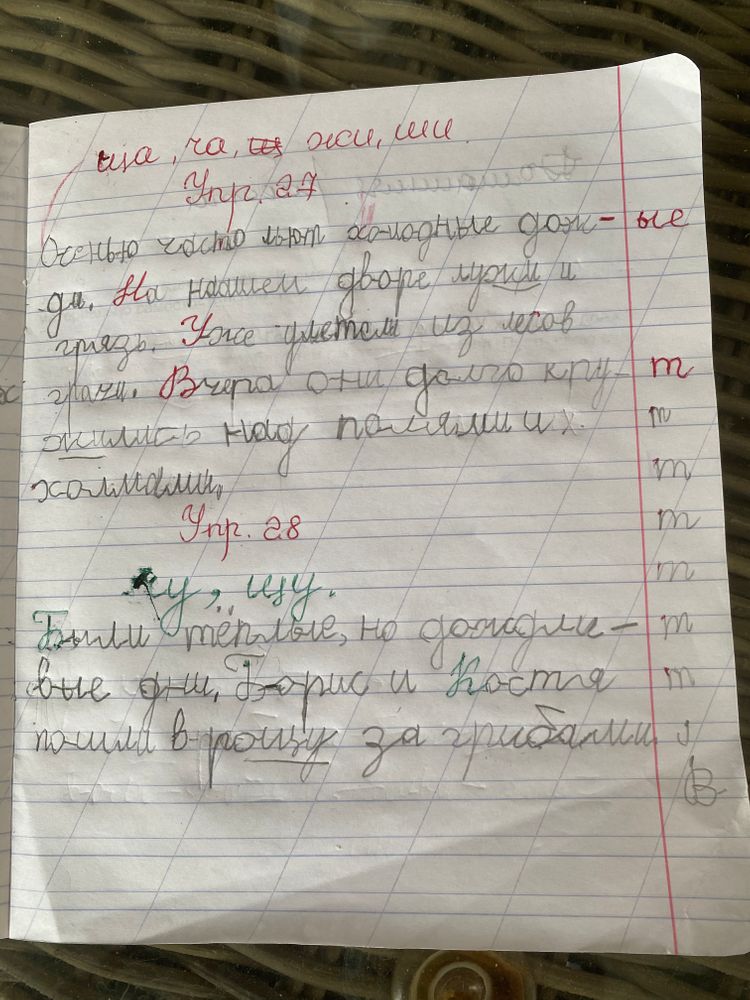 ща, ча, жи, ши.
Упр. 27
Осенью часто льют холодные дож- ые
ди. На нашем дворе лужи и
грязь. Уже улетели из лесов
грачи. Вчера они долго кру- т
жились над полями и х. т
холмами. т
Упр. 28 т
чу, щу. т
Были тёплые, но дождли- т
вые дни. Борис и Костя т
пошли в рощу за грибами.
В